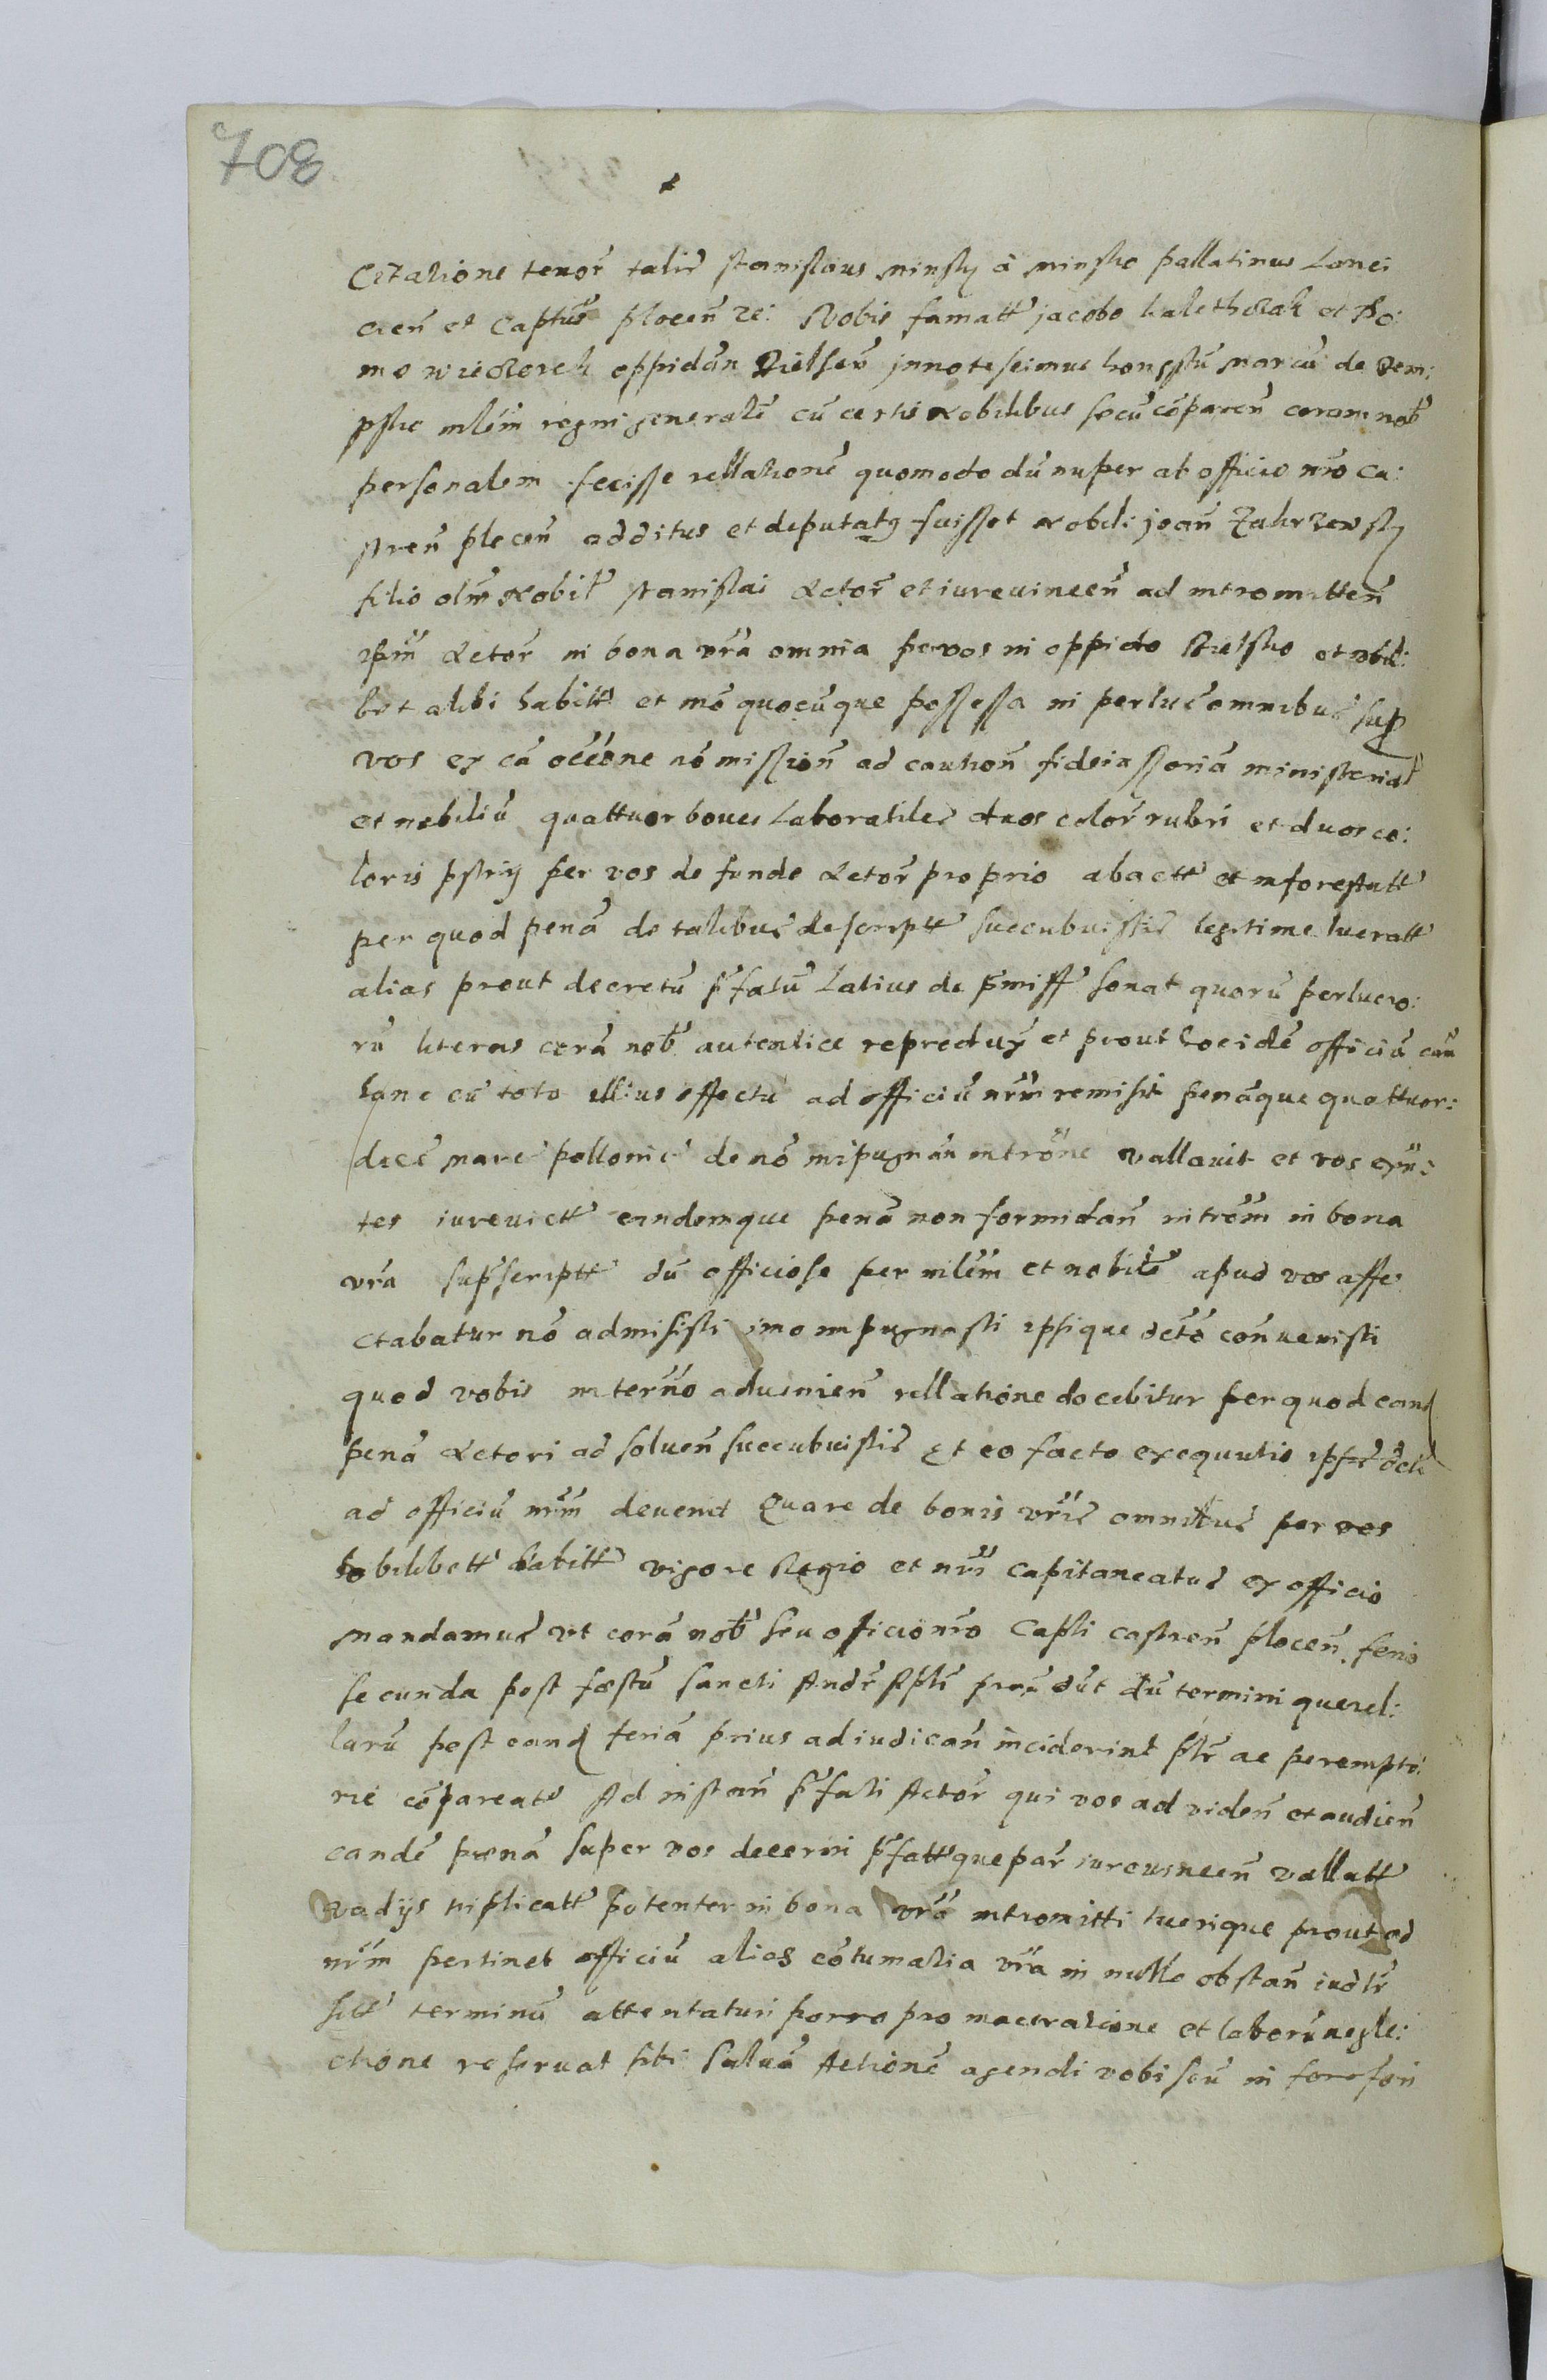 708
Citatione tenor talis Stanislaus Minsky a Minsko pallatinus Lanci
cien et Captus plocen &c: Vobis famatt jacobo et Tho:
mo oppidan Bielscen jnnotescimus honestu Marcu de
mlem regni generale cu certis nobilibus secu coparen coram nob
personalem fecisse rellatione quomodo du nuper ab officio nro ca:
stren plocen additus et deputatq fuisset nobili joan Zakrzewsky
filio olim nobil Stanislai Actor et iurevincen ad intromitten
ipm Actor in bona vra omnia per vos in oppido Bielsko et ubili:
bet alibi habitt et mo quocuque possessa in perlucromnibus sup
vos ex ca occone no mission ad caution fideiussoria ministerial
et nobiliu quattuor boues Laboratiles duos color rubri et duos co:
loris per vos de fundo Actor proprio abactt et inforestatt
per quod pena de talibus descriptt succubuistis legitime lucratt
alias prout decretu pfatu Latius de pmiss sonat quoru perlucro:
ru literas cora nob autentice reprodux et prout locide officiu cau
hanc cu toto illius effectu ad officiu nrm remisit penaque quattuor:
dece marc pollonic de no inpugnan introne vallavit et vos
tes iurevictt eandemque pena non formidan introm in bona
vra supscriptt du officiose per mlem et nobile apud vos affe
ctabatur no admisisti imo inpugnasti ipsique dcto convenisti
quod vobis in termo aduenien rellatione docebitur per quod eand
pena Actori ad soluen succubuistis Et eo facto exequutio ipsius dcti
ad officiu nrm deuenit Quare de bonis vris omnibus per vos
vbilibett habitt vigore Regio et nri Capitaneatus ex officio
mandamus vt cora nob seu oficio nro Capli castren plocen feria
secunda post festu Sancti Andr Apli dut du termini querel:
laru post eand feria prius adiudican inciderint ptr ac perempto:
rie copareatis Ad instan pfati Actor qui vos ad viden et audien
eande poena super vos decerni pfattque par iureuincen vallatt
vadijs triplicatt potenter in bona vra intromitti tuerique prout ad
nrm pertinet officiu alias cotumatia vra in nullo obstan iudlr
sitt terminu attentaturi porro pro maceratione et laboru negle:
ctione reseruat sibi salua Actione agendi vobiscu in foro fori